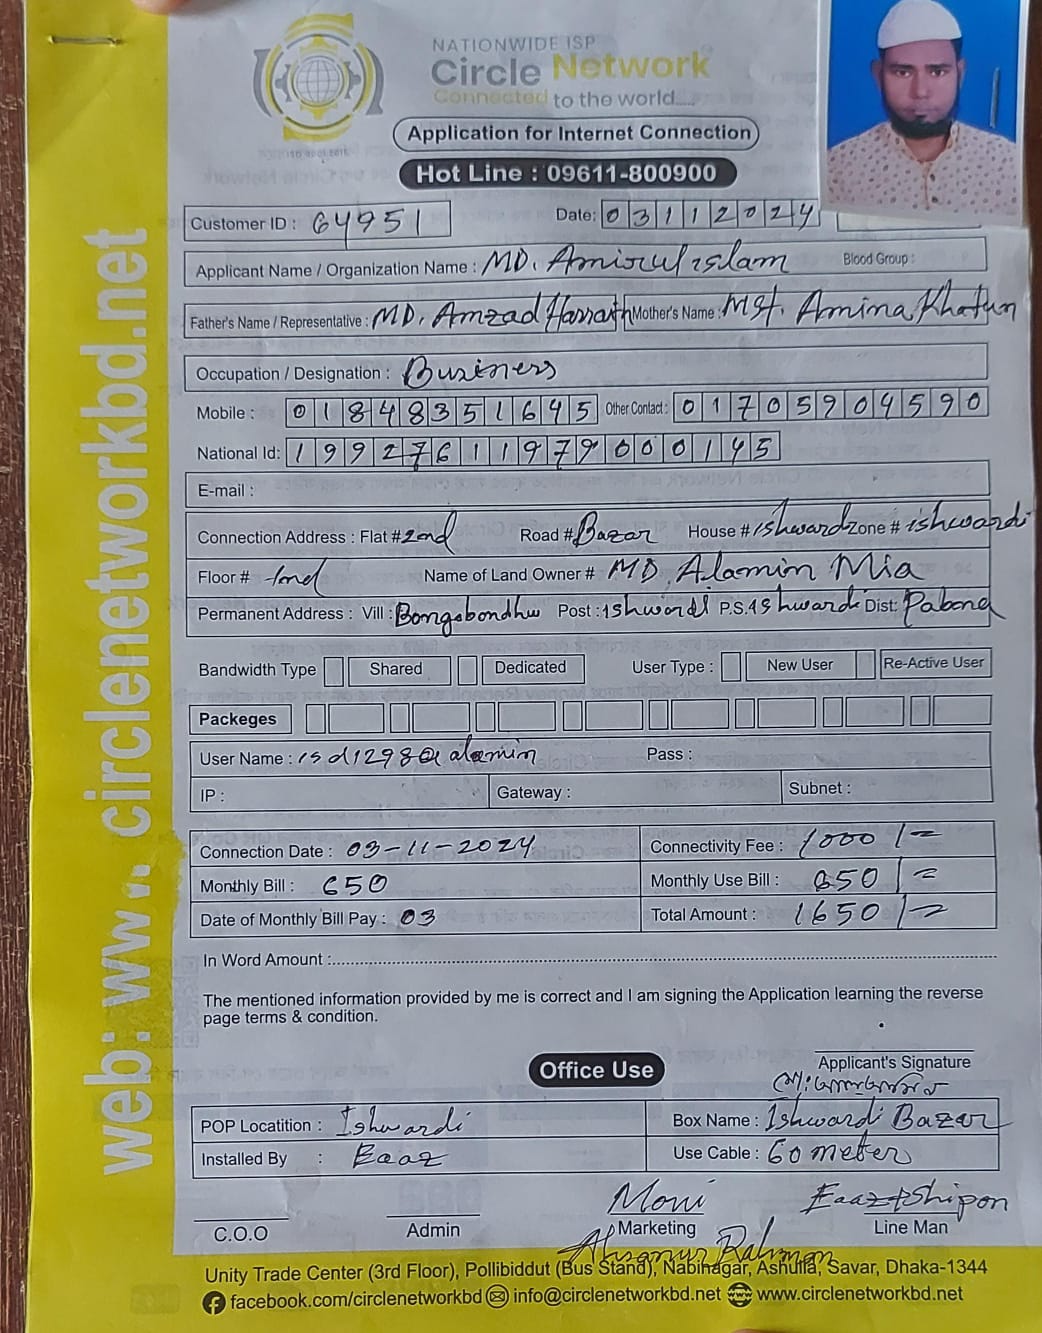 NATIONWIDE ISP
Circle Network
Connected to the world.....
ISO 9001:2015
Application for Internet Connection
Hot Line : 09611-800900
Customer ID : 64951 Date: 03112024
Applicant Name / Organization Name : MD. Amirul islam Blood Group :
Father's Name / Representative : MD. Amzad Mother's Name : Mst. Amina Khatun
Occupation / Designation : Business
Mobile : 01848351645 Other Contact : 01705904590
National Id: 19927611979000145
E-mail :
Connection Address : Flat # 2nd Road # Bazar House # ishwardi Zone # ishwardi
Floor # Name of Land Owner # MD. Alamin Mia
Permanent Address : Vill : Bongobondhu Post : ishwordi P.S. ishwardi Dist: Pabona
Bandwidth Type Shared Dedicated User Type : New User Re-Active User
Packeges
User Name : isd1298@alamin Pass :
IP : Gateway : Subnet :
Connection Date : 03-11-2024 Connectivity Fee : 1000/=
Monthly Bill : 650 Monthly Use Bill : 650/=
Date of Monthly Bill Pay : 03 Total Amount : 1650/=
In Word Amount :
The mentioned information provided by me is correct and I am signing the Application learning the reverse
page terms & condition.
Applicant's Signature
Office Use
POP Locatition : Ishwardi Box Name : Ishwardi Bazar
Installed By : Eaaz Use Cable : 60 meter
Moni Eaaz+Shipon
C.O.O Admin Marketing Line Man
Ahsanur Rahman
Unity Trade Center (3rd Floor), Pollibiddut (Bus Stand), Nabinagar, Ashulia, Savar, Dhaka-1344
facebook.com/circlenetworkbd info@circlenetworkbd.net www.circlenetworkbd.net
web: www.circlenetworkbd.net